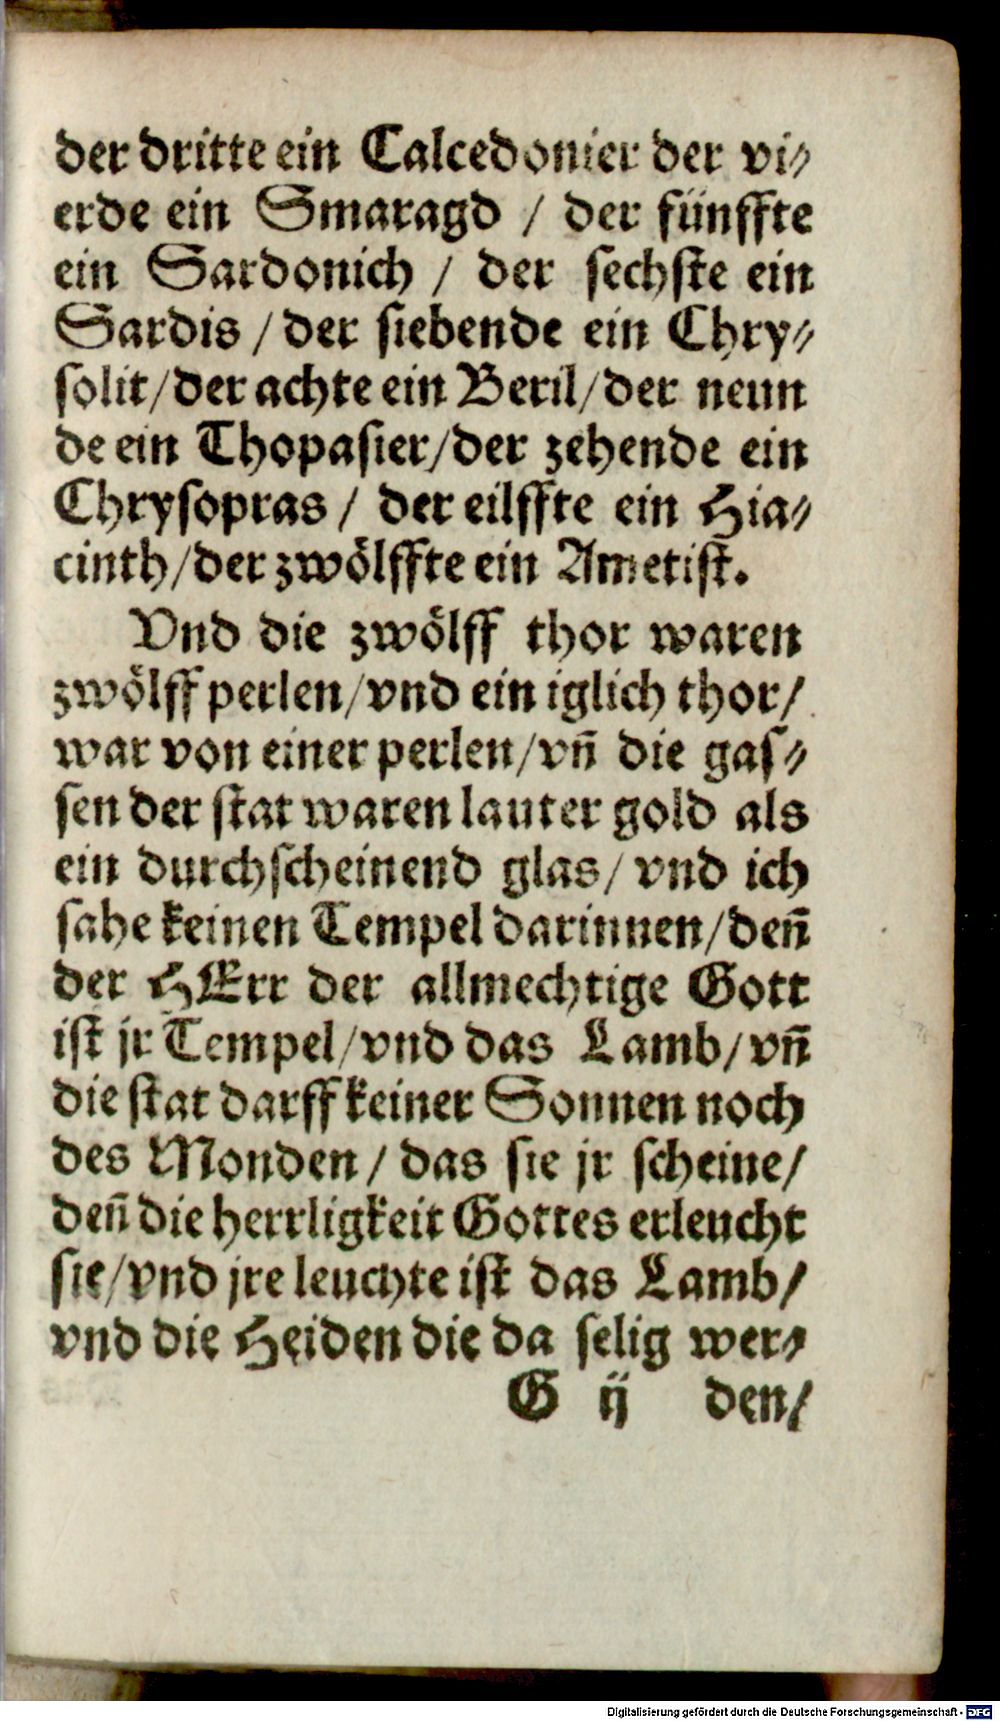 der dritte ein Calcedonier der vi⸗
erde ein Smaragd / der fünffte
ein Sardonich / der sechste ein
Sardis / der siebende ein Chry⸗
solit / der achte ein Beril / der neun
de ein Thopasier / der zehende ein
Chrysopras / der eilffte ein Hia⸗
cinth / der zwölffte ein Ametist.
Vnd die zwölff thor waren
zwölff perlen / vnd ein iglich thor /
war von einer perlen / vn̄ die gas⸗
sen der stat waren lauter gold als
ein durchscheinend glas / vnd ich
sahe keinen Tempel darinnen / den̄
der HErr der allmechtige Gott
ist jr Tempel / vnd das Lamb / vn̄
die stat darff keiner Sonnen noch
des Monden / das sie jr scheine /
den̄ die herrligkeit Gottes erleucht
sie / vnd jre leuchte ist das Lamb /
vnd die Heiden die da selig wer⸗
G ij den /
Digitalisierung gefördert durch die Deutsche Forschungsgemeinschaft - DFG